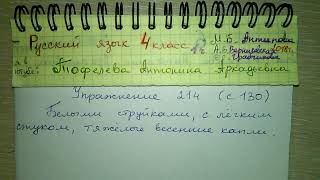 Русский язык 4 класс М.Б. Антипова
А.В. Верниковская
Грабчикова
2018г.
Тофелева Антонина Аркадьевна
Упражнение 214 (с 130)
Белыми струйками, с лёгким
стуком, тяжёлые весенние капли.